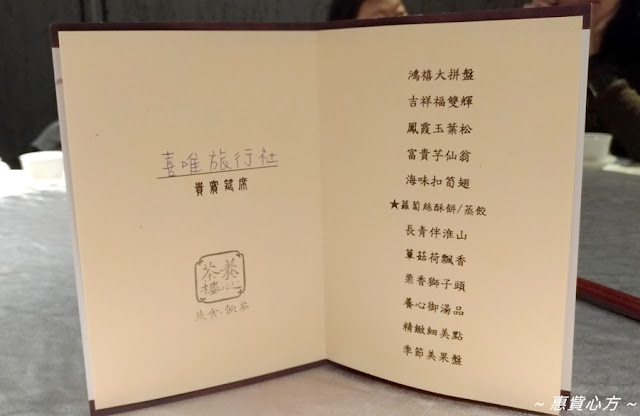 喜唯旅行社
貴賓筵席
養心
茶樓
蔬食‧飲茶
鴻禧大拼盤
吉祥福雙輝
鳳霞玉葉松
富貴芋仙翁
海味扣筍翅
★蘿蔔絲酥餅/蒸餃
長青伴淮山
蕈菇荷飄香
栗香獅子頭
養心御湯品
精緻細美點
季節美果盤
~ 惠賞心方 ~